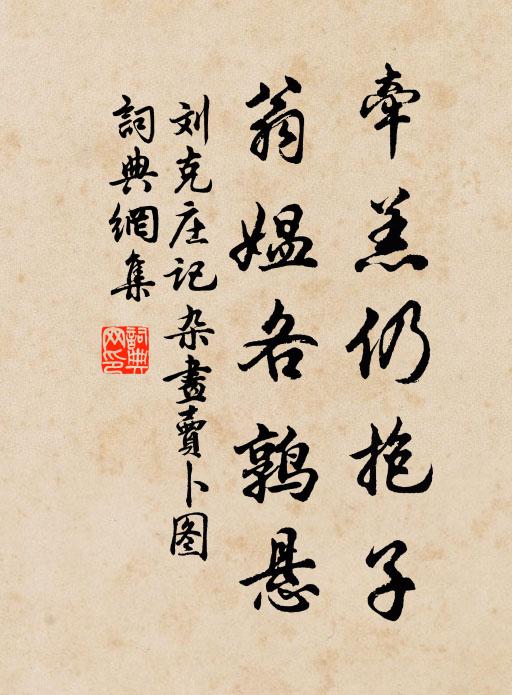 牵羔仍抱子
翁媪各鹑悬
刘克庄记杂畫賣卜图
詞典網集
詞典
网印